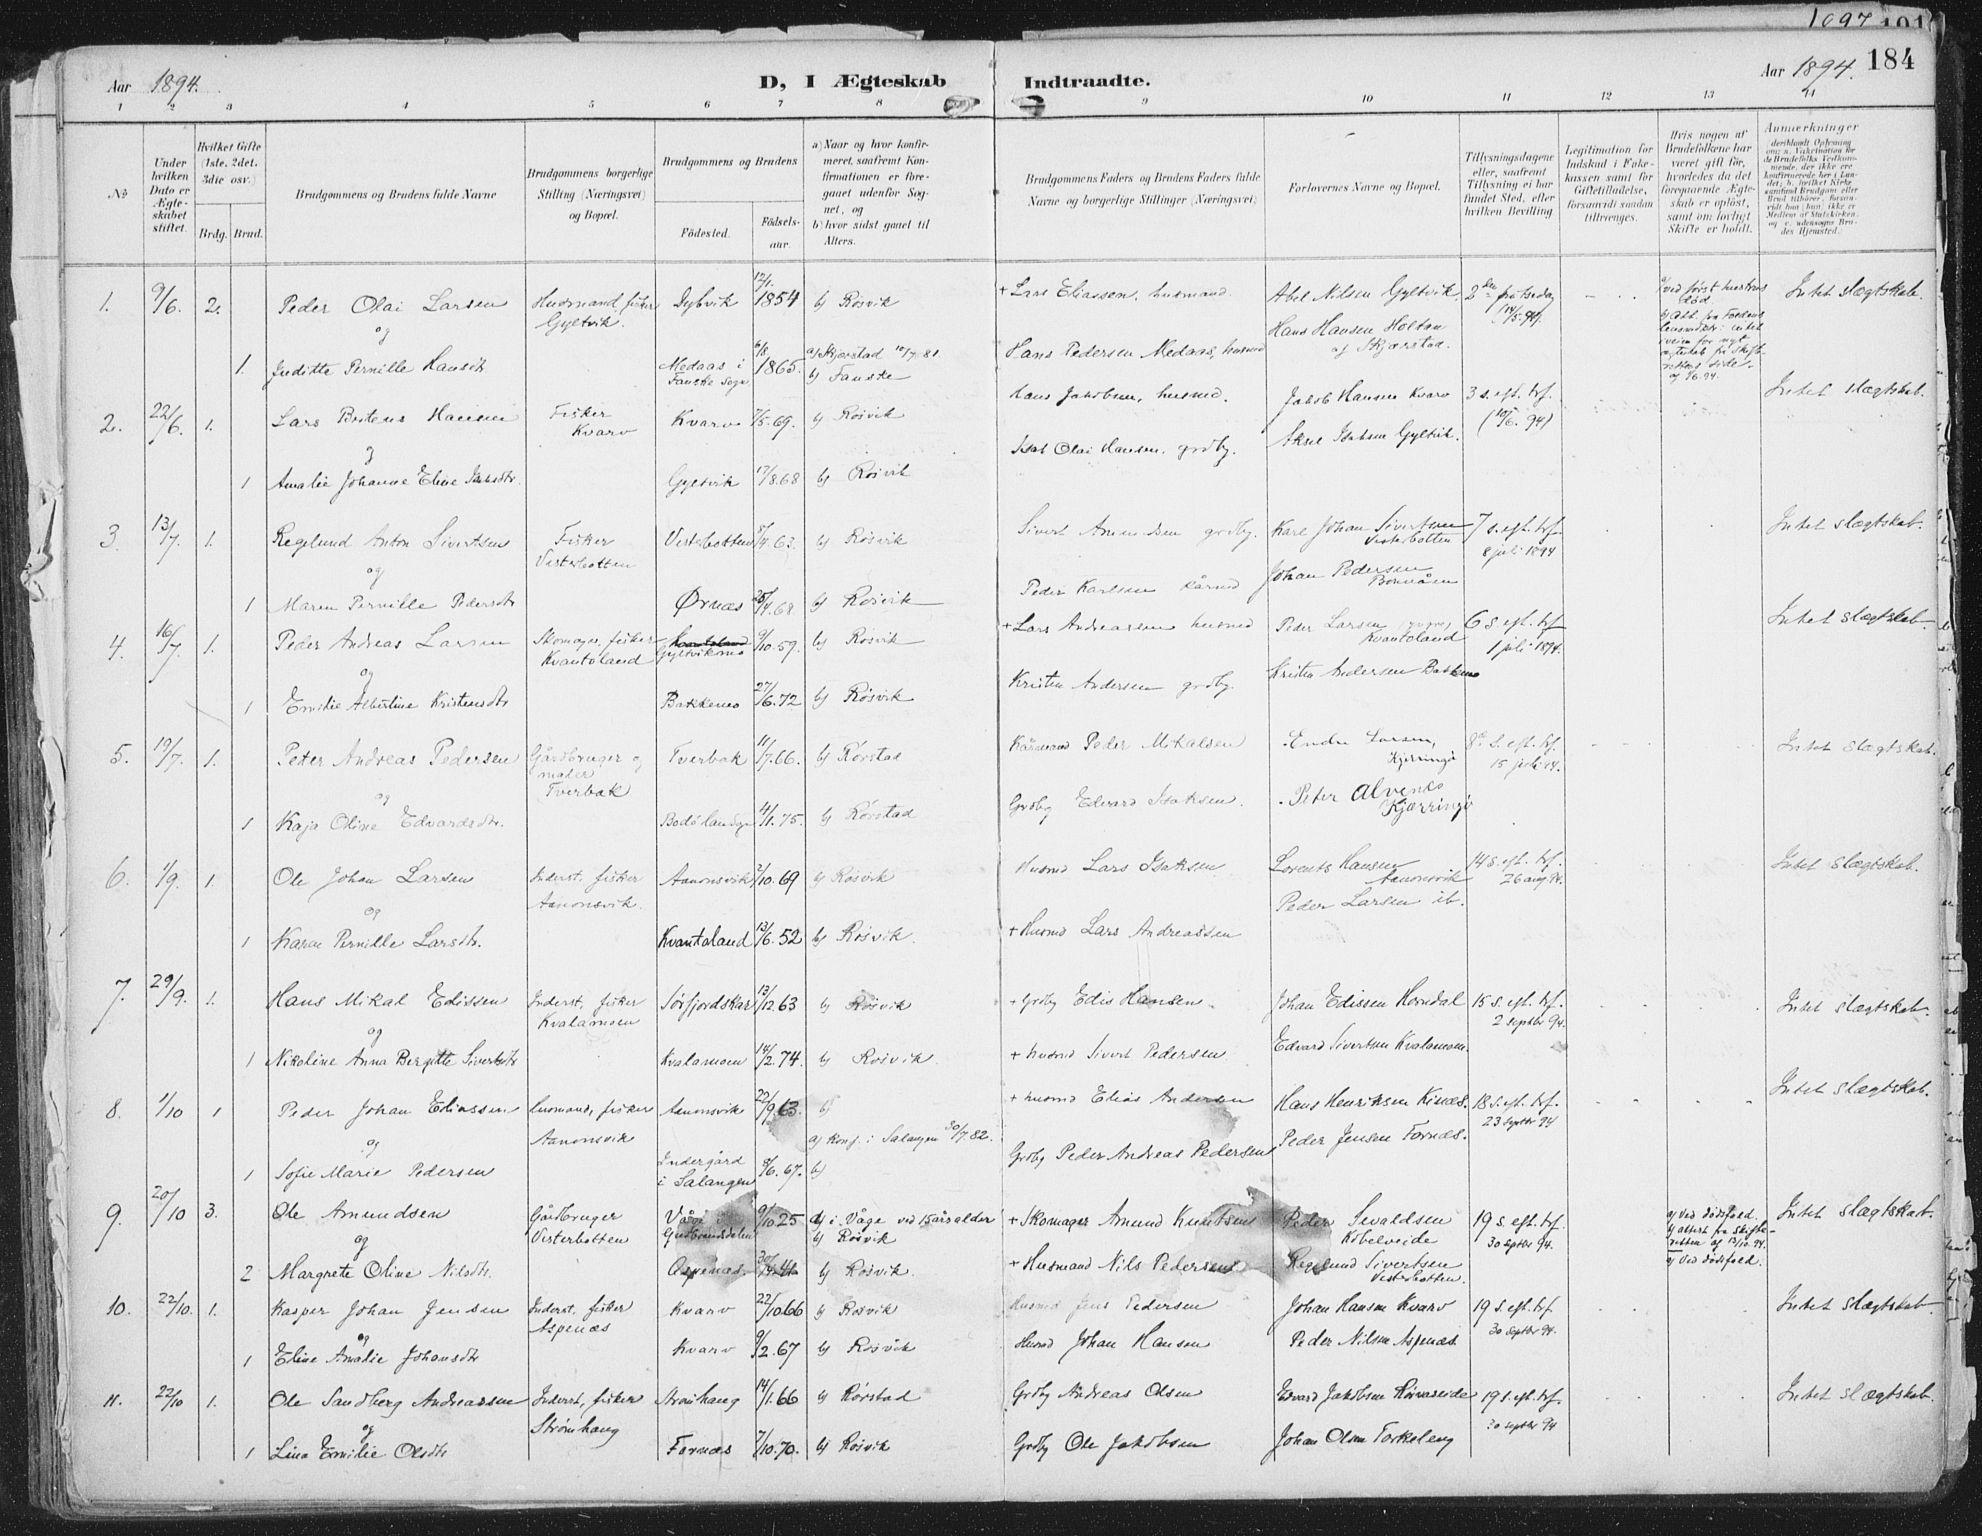 1097 101
Aar 1894. D, I Ægteskab Indtraadte. Aar 1894. 184
1 2 3 4 5 6 7 8 9 10 11 12 13 14
№
Under hvilken Dato er Ægteskabet stiftet.
Hvilket Gifte (1ste, 2det, 3die osv.)
Brdg. Brud.
Brudgommens og Brudens fulde Navne
Brudgommens borgerlige Stilling (Næringsvei) og Bopæl.
Brudgommens og Brudens
Födested. Födselsaar.
a) Naar og hvor konfirmeret, saafremt Konfirmationen er foregaaet udenfor Sognet, og
b) hvor sidst gaaet til Alters.
Brudgommens Faders og Brudens Faders fulde Navne og borgerlige Stillinger (Næringsvei)
Forlovernes Navne og Bopæl.
Tillysningsdagene eller, saafremt Tillysning ei har fundet Sted, efter hvilken Bevilling
Legitimation for Indskud i Enkekassen samt for Giftetilladelse, forsaavidt saadan tiltrænges.
Hvis nogen af Brudefolkene har været gift för, hvorledes da det foregaaende Ægteskab er oplöst, samt om lovligt Skifte er holdt.
Anmerkninger
1. 9/6. 2. Peder Olai Larsen Husmand, fisker Gyltvik. Dybvik 12/1. 1854 b) Røsvik + Lars Eliassen, husmand Abel Nilsen Gyltvik 2den pintsedag 14/5. 94. Intet slægtskab.
og
1. Juditte Pernille Hansdtr Medaas i Fauske sogn 6/8 1865. a) Skjerstad 10/7 81 b) Fauske Hans Pedersen Medaas, husmd Hans Hansen Holtan af Skjærstad.
2. 22/6. 1. Lars Hansen Fisker Kvarv Kvarv 7/5. 69. b) Røsvik Hans Jakobsen, husmd. Jakob Hansen Kvarv 3 s. eft. trf. (10/6. 94) Intet slægtskab.
og
1 Amalie Johanne Eline Isaksdtr. Gyltvik 17/8. 68 b) Røsvik Isak Olai Hansen, grdbr. Aksel Isaksen Gyltvik.
3. 13/7. 1. Regelund Anton Sivertsen Fisker Visterbotten Visterbotten 8/4. 63. b) Røsvik Sivert Amundsen grdbr. Karl Johan Sivertsen Visterbotten 7 s. eft. trf. 8 juli 1894 Intet slægtskab.
og
1 Maren Pernille Pedersdtr Ørnæs 25/4. 68 b) Røsvik Peder Karlsen kårmd Johan Pedersen Bonnåen
4. 16/7. 1. Peder Andreas Larsen Skomager, fisker Kvantoland Gyltvikmo 9/10. 59. b) Røsvik + Lars Andreassen husmd Peder Larsen Kvantoland 6 s. eft. trf. 1 juli 1894. Intet slægtskab.
og
1 Emilie Albertine Kristensdtr Bakkemo 27/6. 72 b) Røsvik Kristen Andersen grdbr. Kristen Andersen Bakkemo
5. 19/7. 1. Peter Andreas Pedersen Gårdbruger og maler Tverbak Tverbak 11/7. 66. b) Rørstad Kårmand Peder Mikalsen Endre Larsen, Kjerringø 8de s. eft. trf. 15 juli 94. Intet slægtskab.
og
1 Kaja Oline Edvardsdtr. Bodø landsogn 4/1. 75. b) Rørstad Grdbr Edvard Isaksen. Peter Alvenes Kjærringø
6. 1/9. 1. Ole Johan Larsen Inderst. fisker Aanonsvik. Aanonsvik 2/10. 69 b) Røsvik Husmd Lars Isaksen Lorents Hansen Aanonsvik 14 s. eft. trf. 26 aug 94. Intet slægtskab.
og
1 Karen Pernille Larsdtr. Kvantoland 13/6. 52 b) Røsvik. + Husmd Lars Andreassen Peder Larsen ib.
7. 29/9. 1. Hans Mikal Edissen Inderst, fisker Kvalamoen Sørfjordskar 13/12. 63 b) Røsvik + grdbr Edis Hansen Johan Edissen Horndal 15 s. eft. trf. 2 septbr 94. Intet slægtskab.
og
1 Nikoline Anna Bergitte Sivertsdtr Kvalamoen 14/2. 74. b) Røsvik. + husmd Sivert Pedersen Edvard Sivertsen Kvalamoen.
8. 1/10 1 Peder Johan Eliassen husmand, fisker Aanonsvik Aanonsvik 22/9. 63. b) + husmd Elias Andersen Hans Henriksen Kinæs. 18 s. eft. trf. 23 septbr 94 Intet slægtskab.
og
1 Sofie Marie Pedersen Indergård i Salangen 8/6. 67. a) Konf. i Salangen 30/7. 82. b) Grdbr Peder Andreas Pedersen Peder Jensen Fornæs.
9. 20/10 3. Ole Amundsen Gårdbruger Visterbotten Våge i Gudbrandsdalen 9/10. 25 a) i Våge ved 15 års alder b) Røsvik + Skomager Amund Knutsen Peder Sevaldsen Kobelveide 19 s. eft. trf. 30 septbr 94. a) ved dødsfald. b) attest fra skifteretten af 13/10. 94. Intet slægtskab.
og
2 Margrete Oline Nilsdtr. Aspenæs. b) Røsvik. + Husmand Nils Pedersen Regelund Sivertsen Visterbotten. a) ved dødsfald.
10. 22/10. 1. Kasper Johan Jensen Inderst. fisker Aspenæs Kvarv 22/10. 66 b) Røsvik Husmd Jens Pedersen Johan Hansen Kvarv 19 s. eft. trf. 30 septbr 94. Intet slægtskab.
og
1 Eline Amalie Johansdtr Kvarv 9/2. 67 b) Røsvik Husmd Johan Hansen Peder Nilsen Aspenæs
11. 22/10 1. Ole Sandberg Andreassen Inderst, fisker Strømhaug Strømhaug 14/1. 66 b) Rørstad Grdbr Andreas Olsen Edvard Jakobsen 19 s. eft. trf. 30 septbr 94 Intet slægtskab.
og
1 Lina Emilie Olsdtr Fornæs 7/10. 70. b) Røsvik Grdbr Ole Jakobsen Johan Olsen Torkeleng